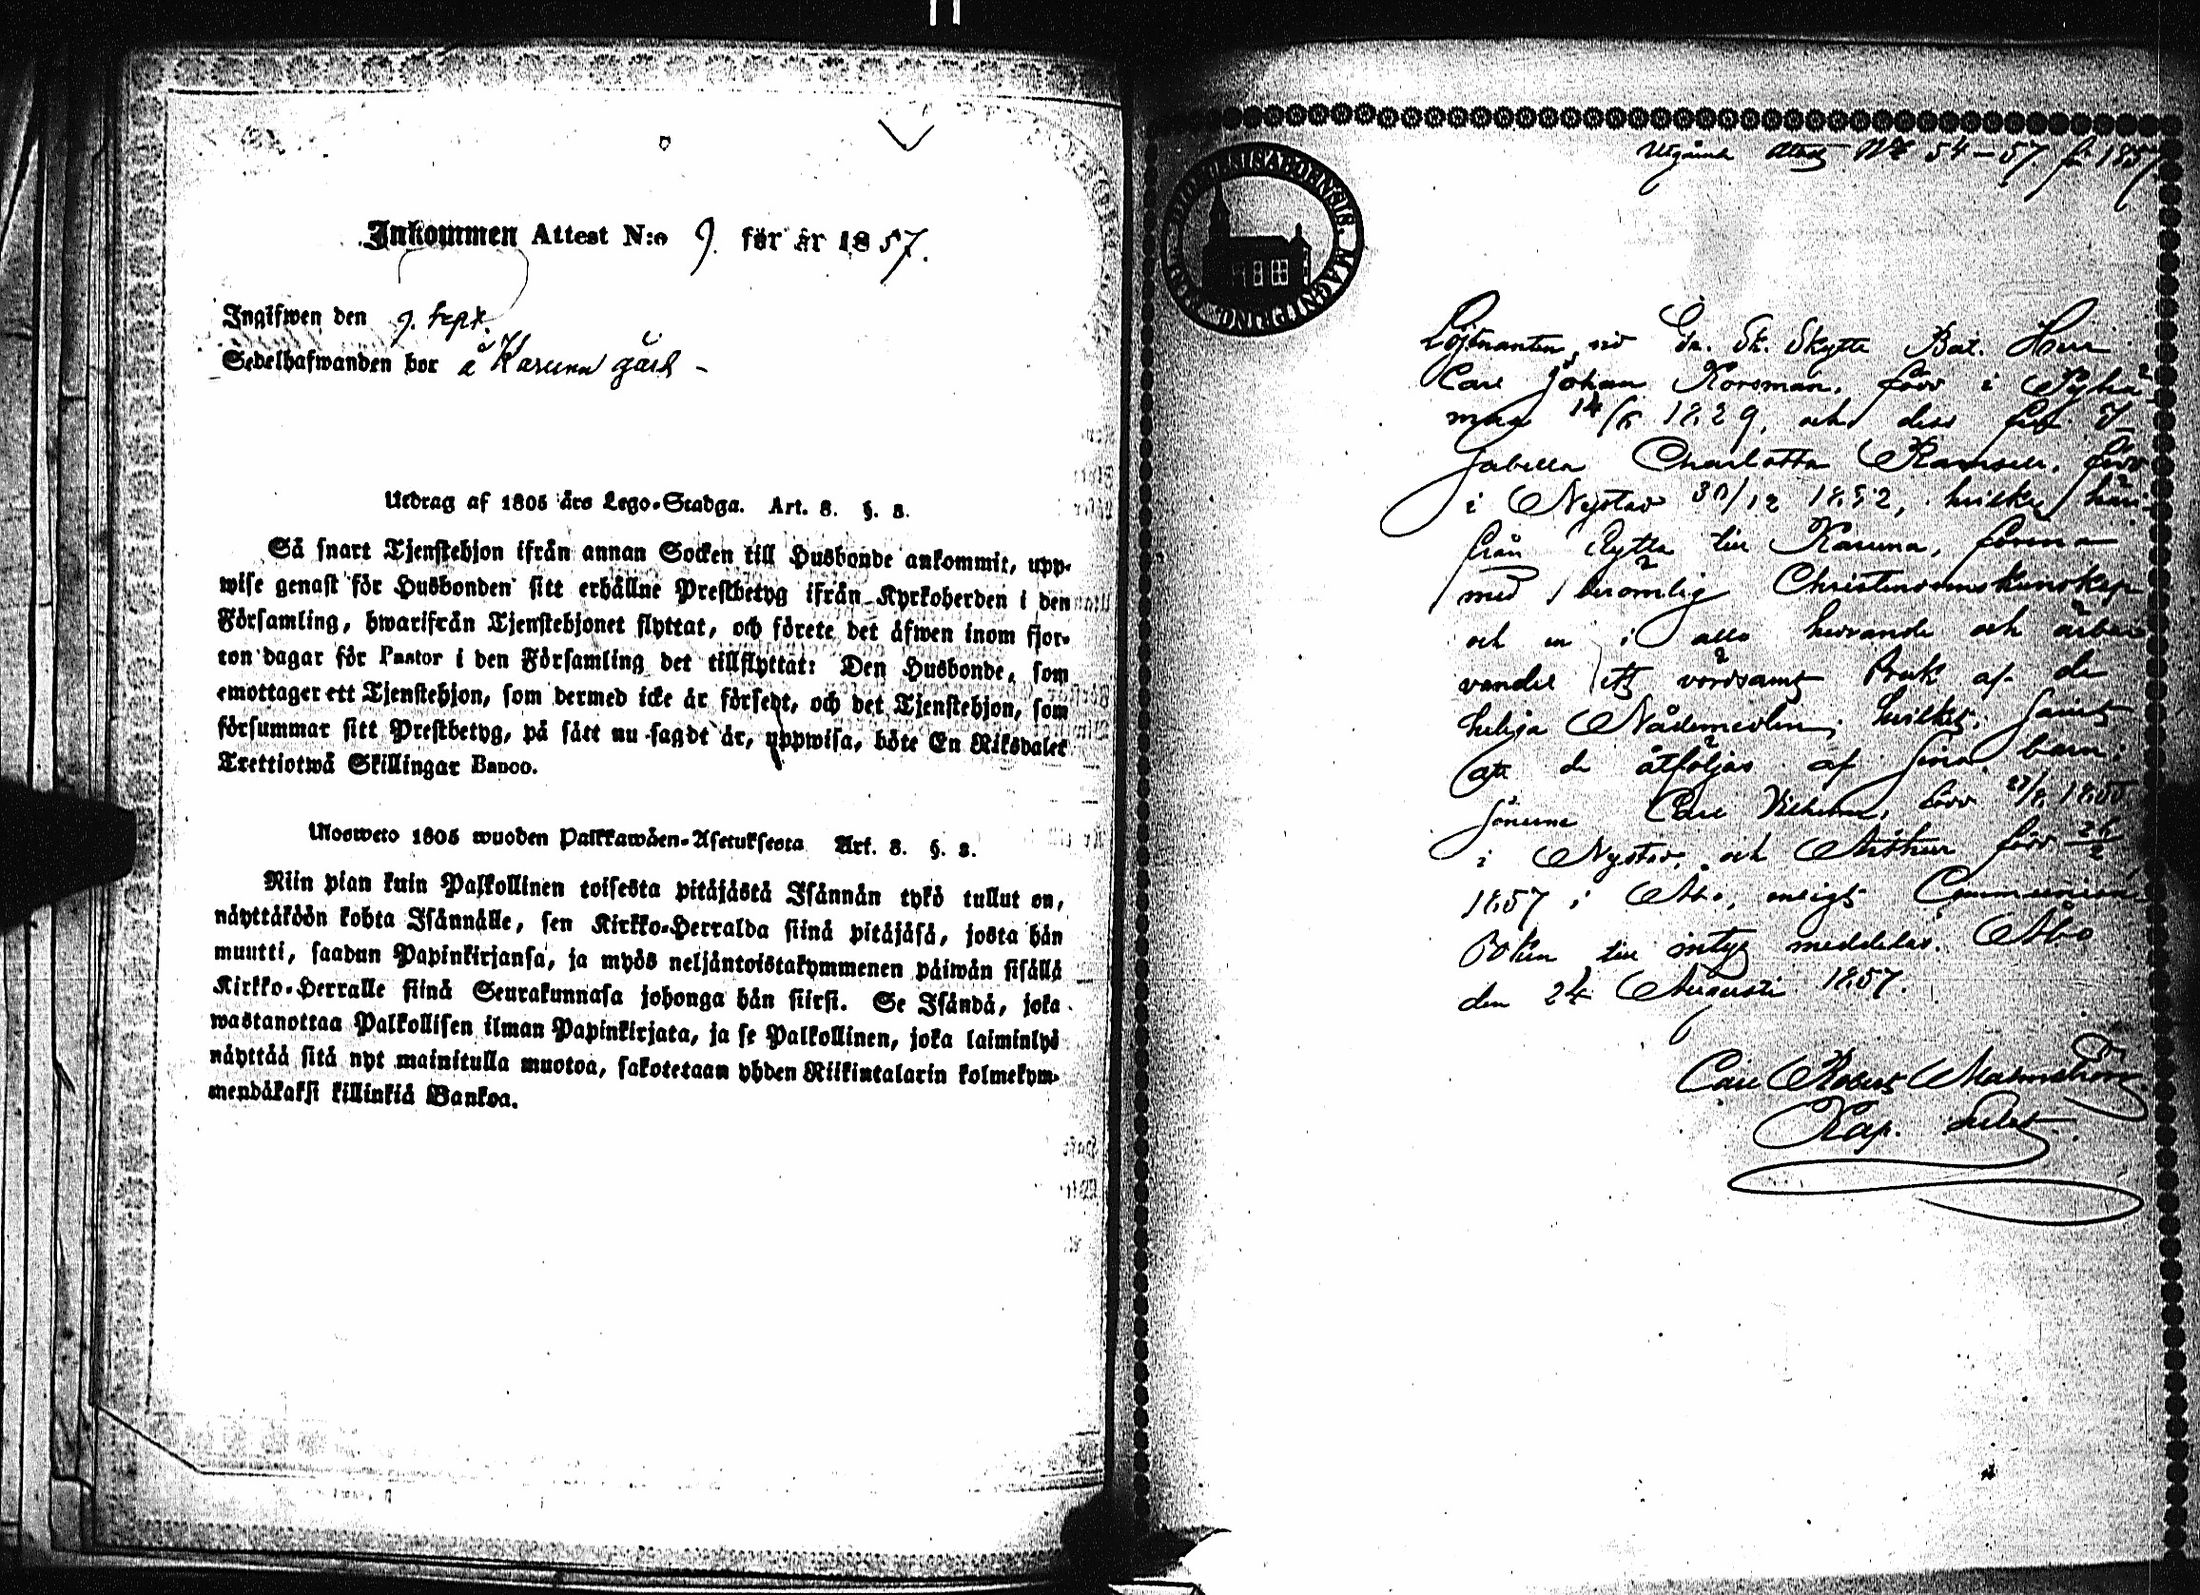 Inkommen Attest N:o 9. för år 1857.
Ingifwen den 9. Sept.
Sedelhafwanden bor å Karuna gård –
Utdrag af 1805 års Lego-Stadga. Art. 8. §. 3.
Så snart Tjenstehjon ifrån annan Socken till Husbonde ankommit, upp-
wise genast för Husbonden sitt erhållne Prestbetyg ifrån Kyrkoherden i den
Församling, hwarifrån Tjenstehjonet flyttat, och förete det äfwen inom fjor-
ton dagar för Pastor i den Församling det tillflyttat: Den Husbonde, som
emottager ett Tjenstehjon, som dermed icke är försedt, och det Tjenstehjon, som
försummar sitt Prestbetyg, på sätt nu sagdt är, uppwisa, böte En Riksdaler
Trettiotwå Skillingar Banco.
Ulosweto 1805 wuoden Palkkawäen-Asetuksesta Art. 8. §. 3.
Niin pian kuin Palkollinen toisesta pitäjästä Isännän tykö tullut on,
näyttäköön kohta Isännälle, sen Kirkko-Herralda siinä pitäjäsä, josta hän
muutti, saadun Papinkirjansa, ja myös neljäntoistakymmenen päiwän sisällä
Kirkko-Herralle siinä Seurakunnasa johonga hän siirsi. Se Isändä, joka
wastanottaa Palkollisen ilman Papinkirjata, ja se Palkollinen, joka laiminlyö
näyttää sitä nyt mainitulla muotoa, sakotetaan yhden Riikintalarin kolmekym-
mendäkaksi killinkiä Bankoa.
Utgånde Attest N:o 54–57 för 1857
Löjtnanten vid Gr. Sk. Skytte Bat. Herr
Carl Johan Korsman, född i Pyhä-
maa 14/6 1829, och dess fru
Jabella Charlotta Ramsell, född
i Nystad 30/12 1832, hvilka här-
ifrån flytta till Karuna, förena
med berömlig Christendomskunskap
och en i allo hedrande och ärbar
vandel ett vördsamt Bruk af de
heliga Nådemedlen; hvilket, samt
att de åtföljas af sina barn:
sönerne Carl Vilhelm, född 1855
i Nystad, och Arthur född 26/2
1857 i Åbo, enligt Communion-
Boken till intyg meddelas. Åbo
den 24 Augusti 1857.
Carl Robert Malmström
Kap. Adj.